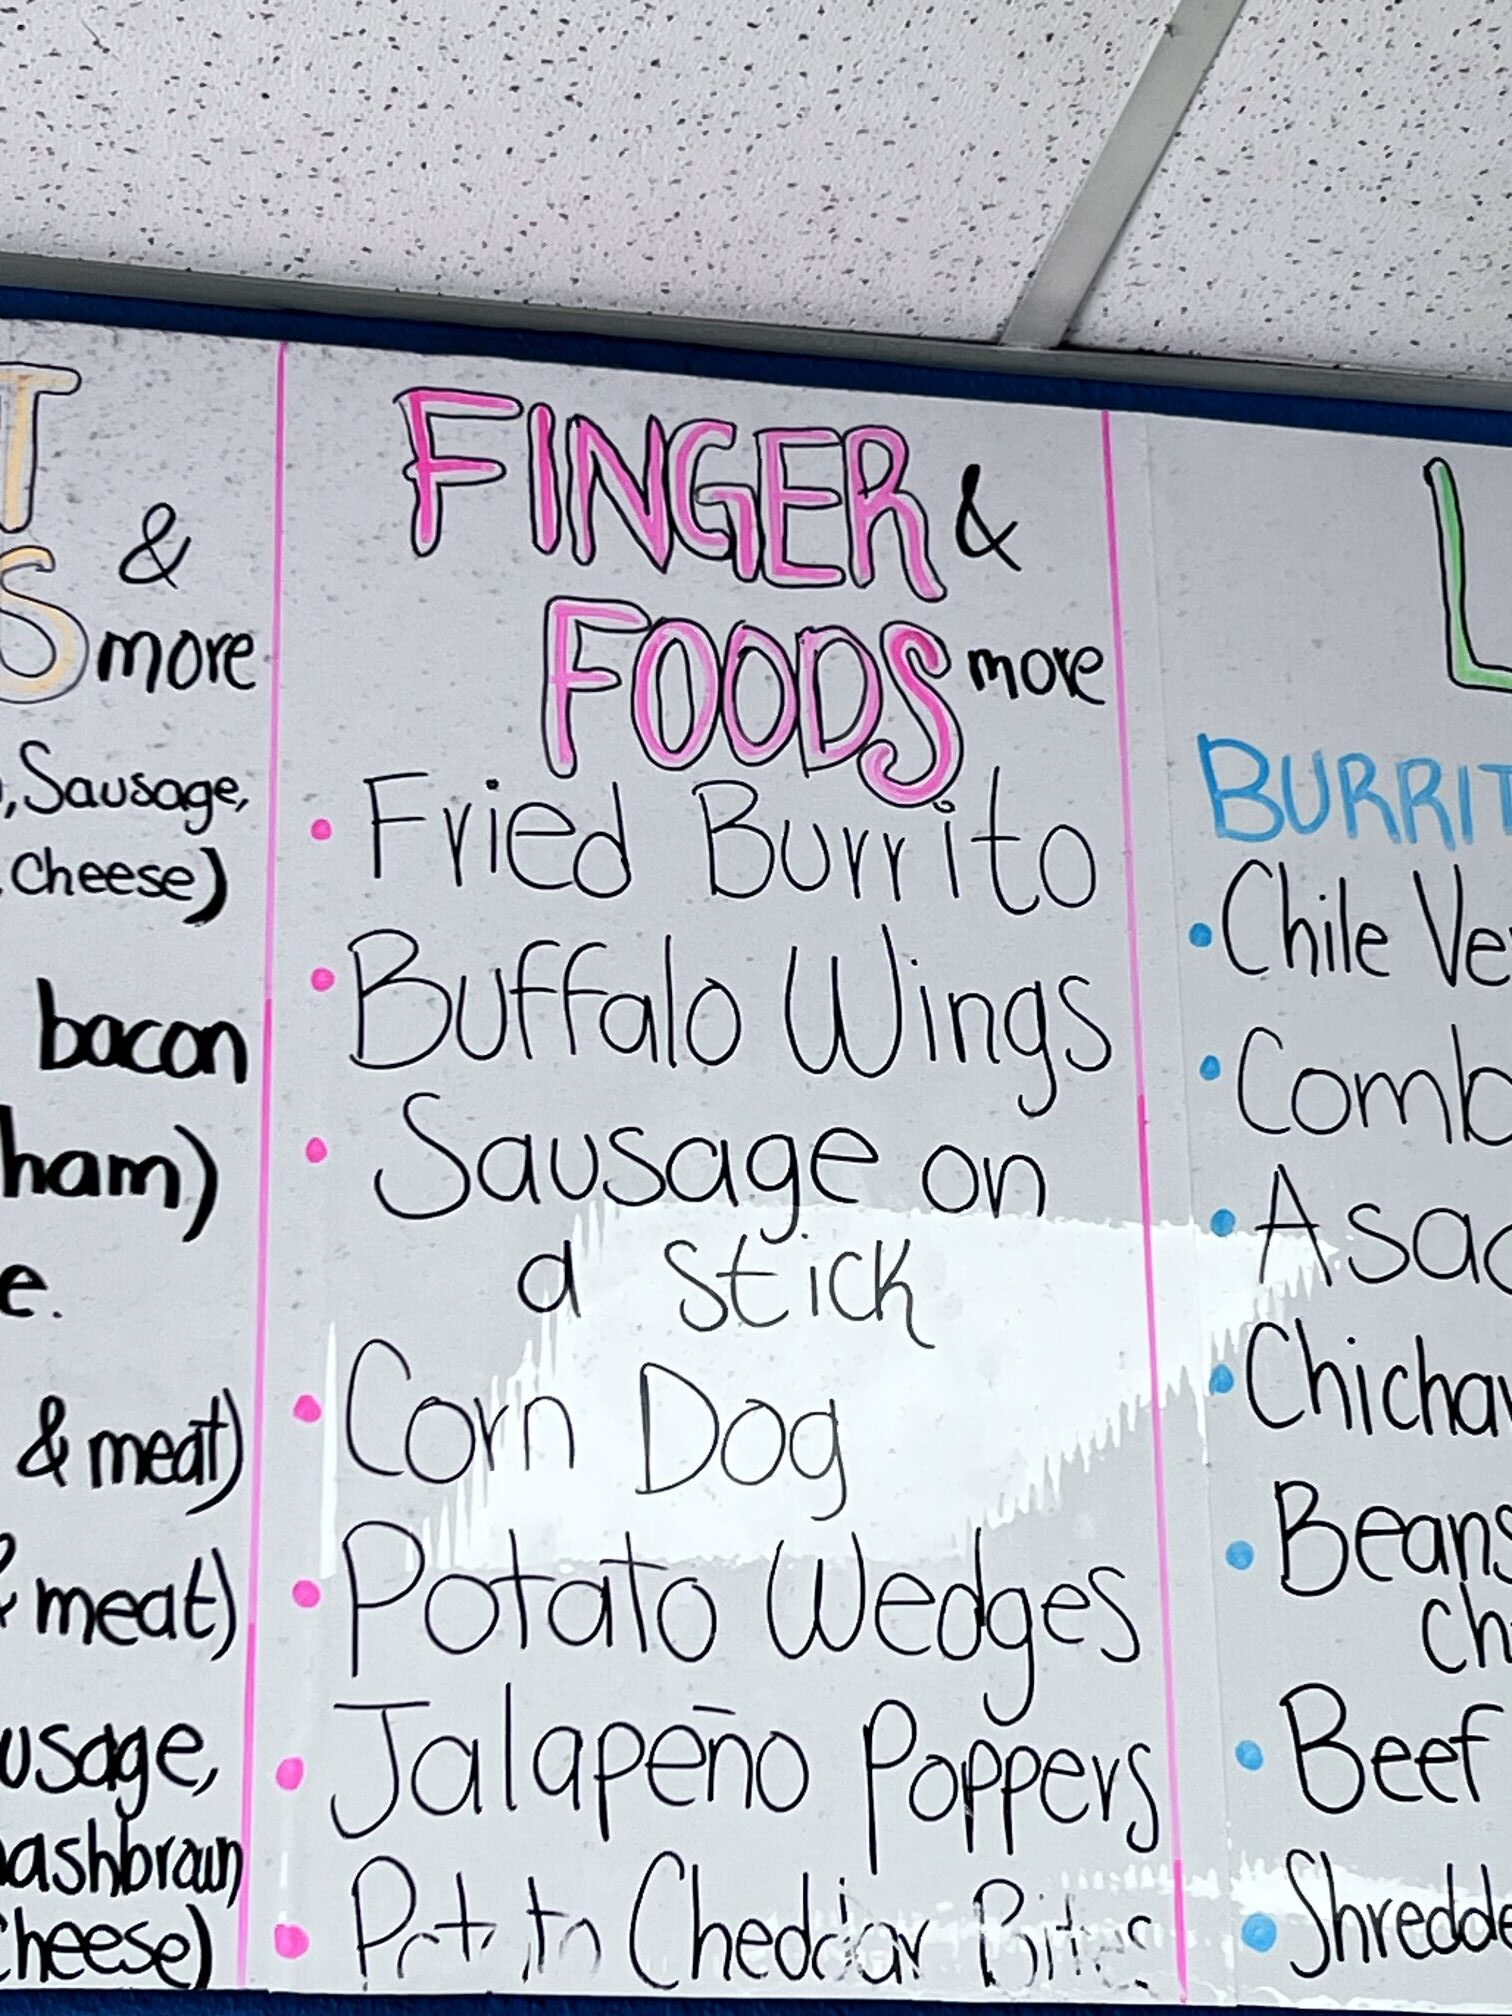 T
&
S more
, Sausage,
Cheese)
bacon
ham)
e.
& meat)
& meat)
usage,
hashbrown
cheese)
FINGER &
FOODS more
• Fried Burrito
• Buffalo Wings
• Sausage on
a stick
• Corn Dog
• Potato Wedges
• Jalapeño Poppers
• Potato Cheddar Bites
L
BURRIT
• Chile Ve
• Comb
• Asad
• Chichar
• Beans
ch
• Beef
• Shredde